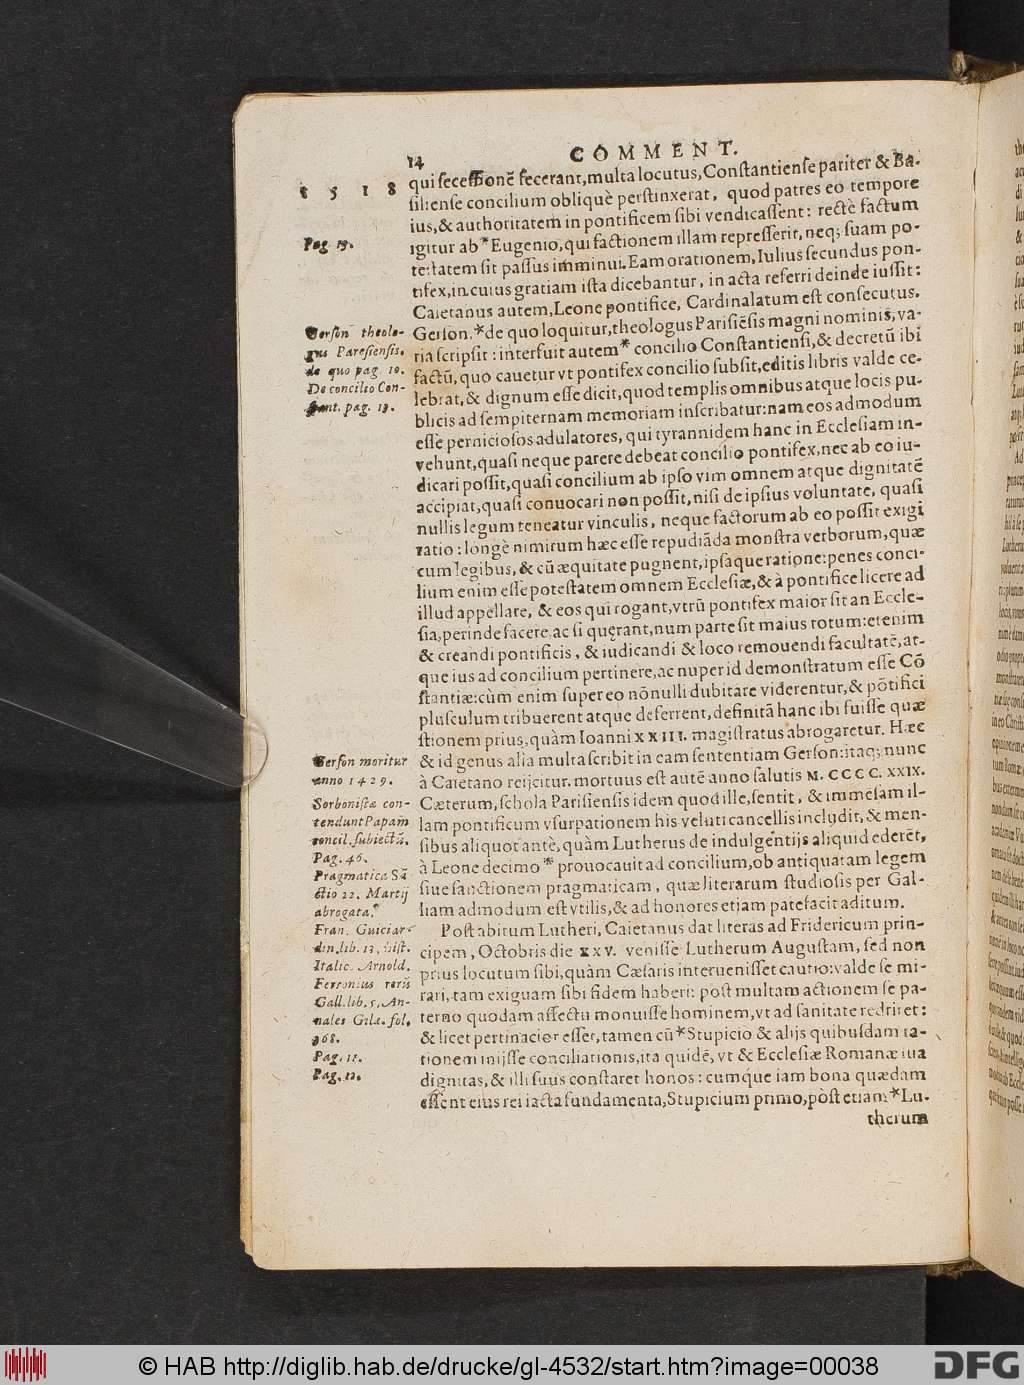 14
COMMENT.
1518
qui secessionē fecerant, multa locutus, Constantiense pariter & Ba-
siliense concilium obliquè perstinxerat, quod patres eo tempore
ius, & authoritatem in pontificem sibi vendicassent: rectè factum
igitur ab* Eugenio, qui factionem illam represserit, neq; suam po-
testatem sit passus imminui. Eam orationem, Iulius secundus pon-
tifex, in cuius gratiam ista dicebantur, in acta referri deinde iussit:
Caietanus autem, Leone pontifice, Cardinalatum est consecutus.
Gerson,* de quo loquitur, theologus Parisiēsis magni nominis, va-
ria scripsit: interfuit autem* concilio Constantiensi, & decretū ibi
factū, quo cauetur vt pontifex concilio subsit, editis libris valde ce-
lebrat, & dignum esse dicit, quod templis omnibus atque locis pu-
blicis ad sempiternam memoriam inscribatur: nam eos admodum
esse perniciosos adulatores, qui tyrannidem hanc in Ecclesiam in-
vehunt, quasi neque parere debeat concilio pontifex, nec ab eo iu-
dicari possit, quasi concilium ab ipso vim omnem atque dignitatē
accipiat, quasi conuocari non possit, nisi de ipsius voluntate, quasi
nullis legum teneatur vinculis, neque factorum ab eo possit exigi
ratio: longè nimirum hæc esse repudiāda monstra verborum, quæ
cum legibus, & cū æquitate pugnent, ipsaque ratione: penes conci-
lium enim esse potestatem omnem Ecclesiæ, & à pontifice licere ad
illud appellare, & eos qui rogant, vtrū pontifex maior sit an Eccle-
sia, perinde facere, ac si quęrant, num parte sit maius totum: etenim
& creandi pontificis, & iudicandi & loco remouendi facultatē, at-
que ius ad concilium pertinere, ac nuper id demonstratum esse Cō
stantiæ: cùm enim super eo nōnulli dubitare viderentur, & pōtifici
plusculum tribuerent atque deferrent, definitā hanc ibi fuisse quæ
stionem prius, quàm Ioanni XXIII. magistratus abrogaretur. Hæc
& id genus alia multa scribit in eam sententiam Gerson: itaq; nunc
à Caietano reijcitur. mortuus est autē anno salutis M. CCCC. XXIX.
Cæterum, schola Parisiensis idem quod ille, sentit, & immēsam il-
lam pontificum vsurpationem his veluti cancellis includit, & men-
sibus aliquot antè, quàm Lutherus de indulgentijs aliquid ederēt,
à Leone decimo* prouocauit ad concilium, ob antiquatam legem
siue sanctionem pragmaticam, quæ literarum studiosis per Gal-
liam admodum est vtilis, & ad honores etiam patefacit aditum.
Post abitum Lutheri, Caietanus dat literas ad Fridericum prin-
cipem, Octobris die XXV. venisse Lutherum Augustam, sed non
prius locutum sibi, quàm Cæsaris interuenisset cautio: valde se mi-
rari, tam exiguam sibi fidem haberi: post multam actionem se pa-
terno quodam affectu monuisse hominem, vt ad sanitatē rediret:
& licet pertinacior esset, tamen cū* Stupicio & alijs quibusdam ra-
tionem inijsse conciliationis, ita quidē, vt & Ecclesiæ Romanæ sua
dignitas, & illi suus constaret honos: cumque iam bona quædam
essent eius rei iacta fundamenta, Stupicium primo, pòst etiam* Lu-
therum
Pag. 19.
Gerson theolo-
gus Paresiensis.
de quo pag. 19.
De concilio Con-
stant. pag. 13.
Gerson moritur
anno 1429.
Sorbonistæ con-
tendunt Papam
concil. subiectū.
Pag. 46.
Pragmatica Sā
ctio 22. Martij
abrogata.
Fran. Guiciar-
din. lib. 13. hist.
Italic. Arnold.
Ferronius rerū
Gall. lib. 5. An-
nales Gila. fol.
168.
Pag. 11.
Pag. 12.
© HAB http://diglib.hab.de/drucke/gl-4532/start.htm?image=00038
DFG